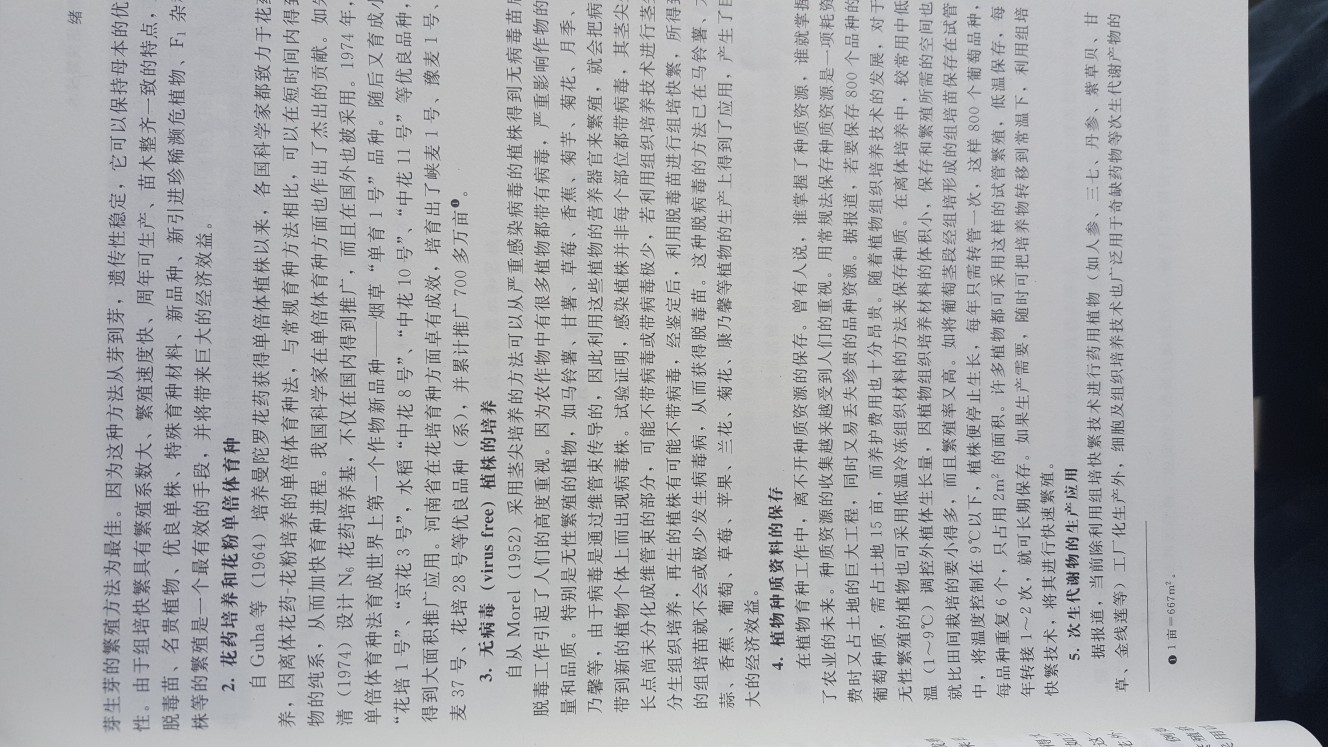 绪
芽生芽的繁殖方法为最佳。因为这种方法从芽到芽，遗传性稳定，它可以保持母本的优
性。由于组培快繁具有繁殖系数大、繁殖速度快、周年可生产、苗木整齐一致的特点，
脱毒苗、名贵植物、优良单株、特殊育种材料、新品种、新引进珍稀濒危植物、F₁ 杂
株等的繁殖是一个最有效的手段，并将带来巨大的经济效益。
2. 花药培养和花粉单倍体育种
自 Guha 等（1964）培养曼陀罗花药获得单倍体植株以来，各国科学家都致力于花药
养，因离体花药-花粉培养的单倍体育种法，与常规育种方法相比，可以在短时间内得到
物的纯系，从而加快育种进程。我国科学家在单倍体育种方面也作出了杰出的贡献。如
清（1974）设计 N₆ 花药培养基，不仅在国内得到推广，而且在国外也被采用。1974 年，
单倍体育种法育成世界上第一个作物新品种——烟草“单育 1 号”品种。随后又育成小
“花培 1 号”、“京花 3 号”，水稻“中花 8 号”、“中花 10 号”、“中花 11 号”等优良品种，
得到大面积推广应用。河南省在花培育种方面卓有成效，培育出了峡麦 1 号、豫麦 1 号、
麦 37 号、花培 28 号等优良品种（系），并累计推广 700 多万亩❶。
3. 无病毒（virus free）植株的培养
自从 Morel（1952）采用茎尖培养的方法可以从严重感染病毒的植株得到无病毒苗后
脱毒工作引起了人们的高度重视。因为农作物中有很多植物都带有病毒，严重影响作物的
量和品质。特别是无性繁殖的植物，如马铃薯、甘薯、草莓、香蕉、菊芋、菊花、月季、
乃馨等，由于病毒是通过维管束传导的，因此利用这些植物的营养器官来繁殖，就会把病
带到新的植物个体上而出现病毒株。试验证明，感染植株并非每个部位都带病毒，其茎尖
长点尚未分化成维管束的部分，可能不带病毒或带病毒极少，若利用组织培养技术进行茎
分生组织培养，再生的植株有可能不带病毒，经鉴定后，利用脱毒苗进行组培快繁，所得到
的组培苗就不会或极少发生病毒病，从而获得脱毒苗。这种脱病毒的方法已在马铃薯、
蒜、香蕉、葡萄、草莓、苹果、兰花、菊花、康乃馨等植物的生产上得到了应用，产生了
大的经济效益。
4. 植物种质资料的保存
在植物育种工作中，离不开种质资源的保存。曾有人说，谁掌握了种质资源，谁就掌握
了农业的未来。种质资源的收集越来越受到人们的重视。用常规法保存种质资源是一项耗资
费时又占土地的巨大工程，同时又易丢失珍贵的品种资源。据报道，若要保存 800 个品种的
葡萄种质，需占土地 15 亩，而养护费用也十分昂贵。随着植物组织培养技术的发展，对于
无性繁殖的植物也可采用低温冷冻组织材料的方法来保存种质。在离体培养中，较常用中低
温（1～9℃）调控外植体生长量，因植物组织培养材料的体积小，保存和繁殖所需的空间也
就比田间栽培的要小得多，而且繁殖率又高。如将葡萄茎段经组培形成的组培苗保存在试管
中，将温度控制在 9℃以下，植株便停止生长，每年只需转管一次，这样 800 个葡萄品种，
每品种重复 6 个，只占用 2m² 的面积。许多植物都可采用这样的试管繁殖，低温保存，每
年转接 1～2 次，就可长期保存。如果生产需要，随时可把培养物转移到常温下，利用组培
快繁技术，将其进行快速繁殖。
5. 次生代谢物的生产应用
据报道，当前除利用组培快繁技术进行药用植物（如人参、三七、丹参、紫草贝、甘
草、金线莲等）工厂化生产外，细胞及组织培养技术也广泛用于奇缺药物等次生代谢产物的
❶ 1 亩＝667m²。